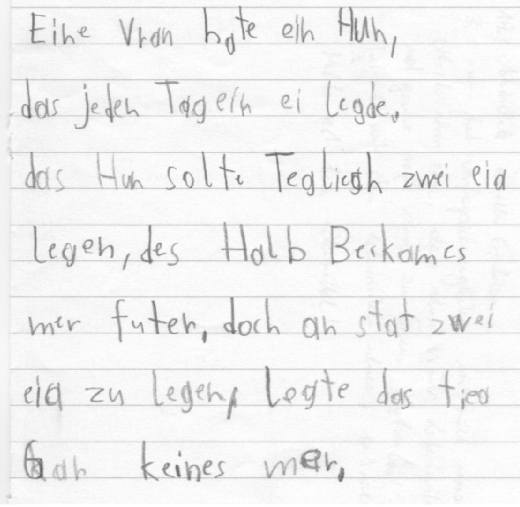 Eine Vran hate ein Huh,
das jeden Tag ein ei legde.
das Huh solte Teglich zwei eia
Legen, des Halb Beckam es
mer futer, doch an stat zwei
eia zu legen, Legte das tiea
Gar keines mer,